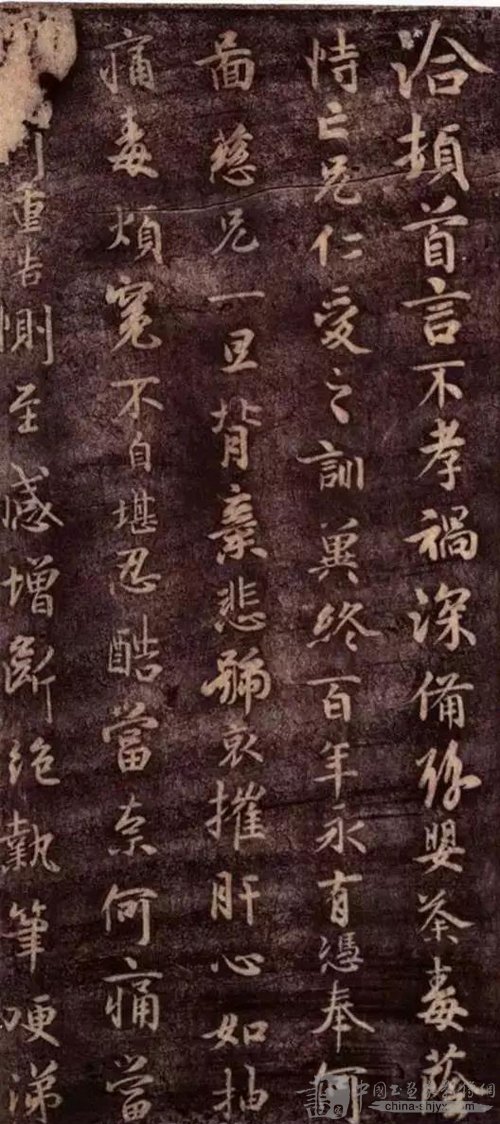 洽頓首言不孝禍深備豫嬰荼毒蔭
恃亡兄仁愛之訓冀終百年永有憑奉何
啚慈兄一旦背棄悲號哀摧肝心如抽
痛毒煩冤不自堪忍酷當奈何痛當
重告惻至感增斷絶執筆哽涕